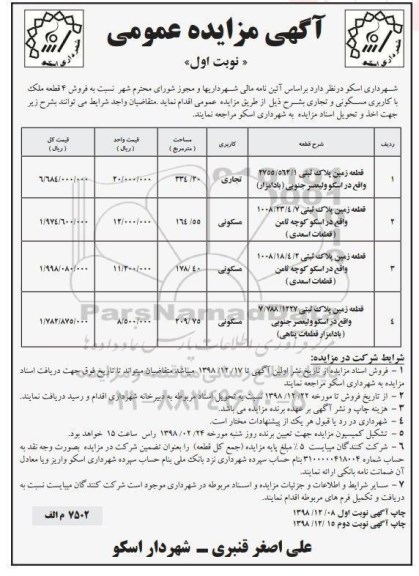 آگهی مزایده عمومی
« نوبت اول»
شهرداری اسکو
شهرداری اسکو
شهرداری اسکو درنظر دارد براساس آئین نامه مالی شهرداریها و مجوز شورای محترم شهر نسبت به فروش ۴ قطعه ملک
با کاربری مسکونی و تجاری بشرح ذیل از طریق مزایده عمومی اقدام نماید .متقاضیان واجد شرایط می توانند بشرح زیر
جهت اخذ و تحویل اسناد مزایده به شهرداری اسکو مراجعه نمایند.
ردیف شرح قطعه کاربری مساحت ( مترمربع ) قیمت واحد ( ریال ) قیمت کل ( ریال )
۱ قطعه زمین پلاک ثبتی ۲۷۵۵/۵۶۲/۱ واقع در اسکو ولیعصر جنوبی (بادامزار) تجاری ۳۳۴/۲۰ ۲۰/۰۰۰/۰۰۰ ۶/۶۸۴/۰۰۰/۰۰۰
۲ قطعه زمین پلاک ثبتی ۱۰۰۸/۲۳/۴/۷ واقع در اسکو کوچه ثامن ( قطعات اسعدی ) مسکونی ۱۶۴/۵۵ ۱۲/۰۰۰/۰۰۰ ۱/۹۷۴/۶۰۰/۰۰۰
۳ قطعه زمین پلاک ثبتی ۱۰۰۸/۱۸/۴/۲ واقع در اسکو کوچه ثامن ( قطعات اسعدی ) مسکونی ۱۷۸/۴۰ ۱۱/۲۰۰/۰۰۰ ۱/۹۹۸/۰۸۰/۰۰۰
۴ قطعه زمین پلاک ثبتی ۷/۷۸۸/۱۲۲۷ واقع در اسکو ولیعصر جنوبی ( بادامزار قطعات پناهی) مسکونی ۲۰۹/۷۵ ۸/۵۰۰/۰۰۰ ۱/۷۸۲/۸۷۵/۰۰۰
ParsNamadData
۰۲۱-۸۸۳۴۹۶۷۰-۵
شرایط شرکت در مزایده:
۱ - فروش اسناد مزایده از تاریخ نشر اولین آگهی تا ۱۳۹۸/۱۲/۱۷ میباشد متقاضیان میتواند تا تاریخ فوق جهت دریافت اسناد
مزایده به شهرداری اسکو مراجعه نمایند
۲ - از تاریخ فروش تا مورخه ۱۳۹۸/۱۲/۲۲ نسبت به تحویل اسناد مربوطه به دبیرخانه شهرداری اقدام و رسید دریافت نمایند.
۳ - هزینه چاپ و نشر آگهی بر عهده برنده مزایده می باشد.
۴ - شهرداری در رد یا قبول هر یک از پیشنهادات مختار است.
۵ - تشکیل کمیسیون مزایده جهت تعیین برنده روز شنبه مورخه ۱۳۹۸/۰۲/۲۴ راس ساعت ۱۵ خواهد بود.
۶ - شرکت کنندگان میبایست ۵٪ مبلغ پایه مزایده (جمع کل قطعه) را بعنوان تضمین شرکت در مزایده بصورت وجه نقد به
حساب شماره ۳۱۰۰۰۰۰۴۱۸۰۰۴ بنام حساب سپرده شهرداری نزد بانک ملی بنام حساب سپرده شهرداری اسکو واریز ویا معادل
آن ضمانت نامه بانکی ارائه نمائید.
۷ - سایر شرایط و اطلاعات و جزئیات مزایده و اسناد مربوطه در شهرداری موجود است شرکت کنندگان میبایست نسبت به
دریافت و تکمیل فرم های مربوطه اقدام نمایند.
چاپ آگهی نوبت اول ۱۳۹۸/۱۲/۰۸
چاپ آگهی نوبت دوم ۱۳۹۸/۱۲/۱۵
۷۵۰۲ م الف
علی اصغر قنبری – شهردار اسکو